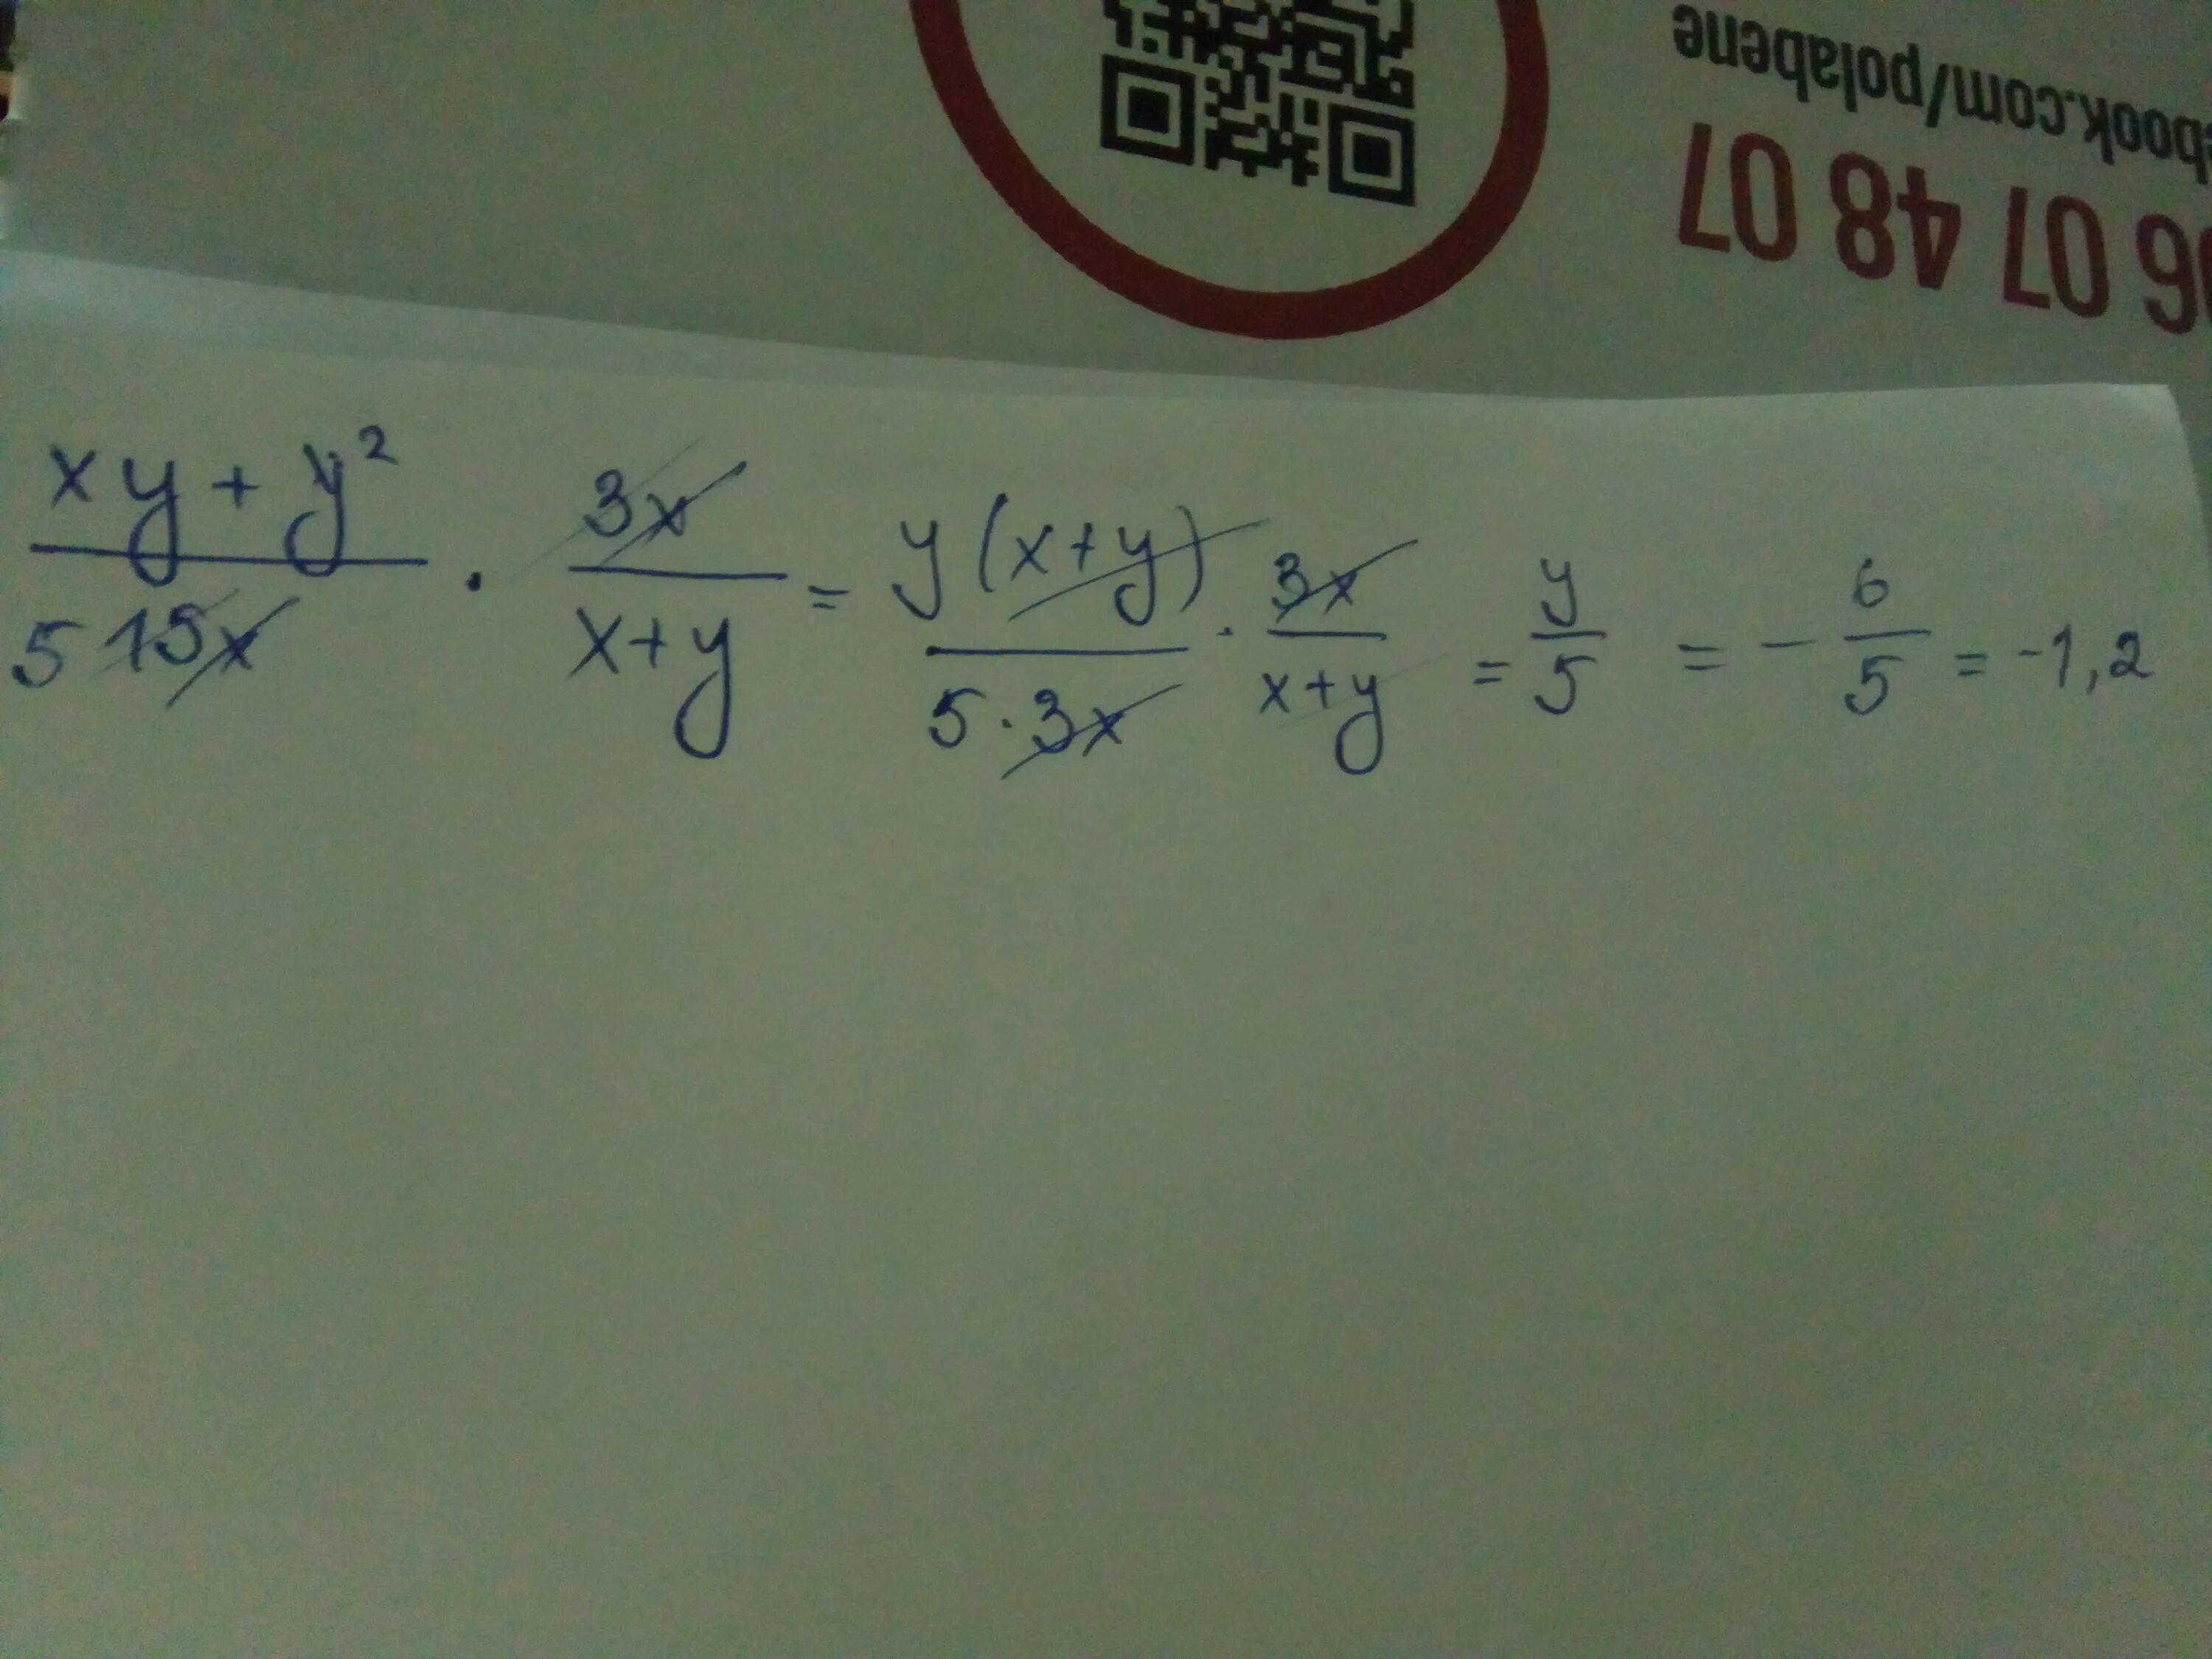 ebook.com/polabene
06 07 48 07
xy + y² / 5 15x · 3x / x+y = y(x+y) / 5·3x · 3x / x+y = y / 5 = - 6 / 5 = -1,2